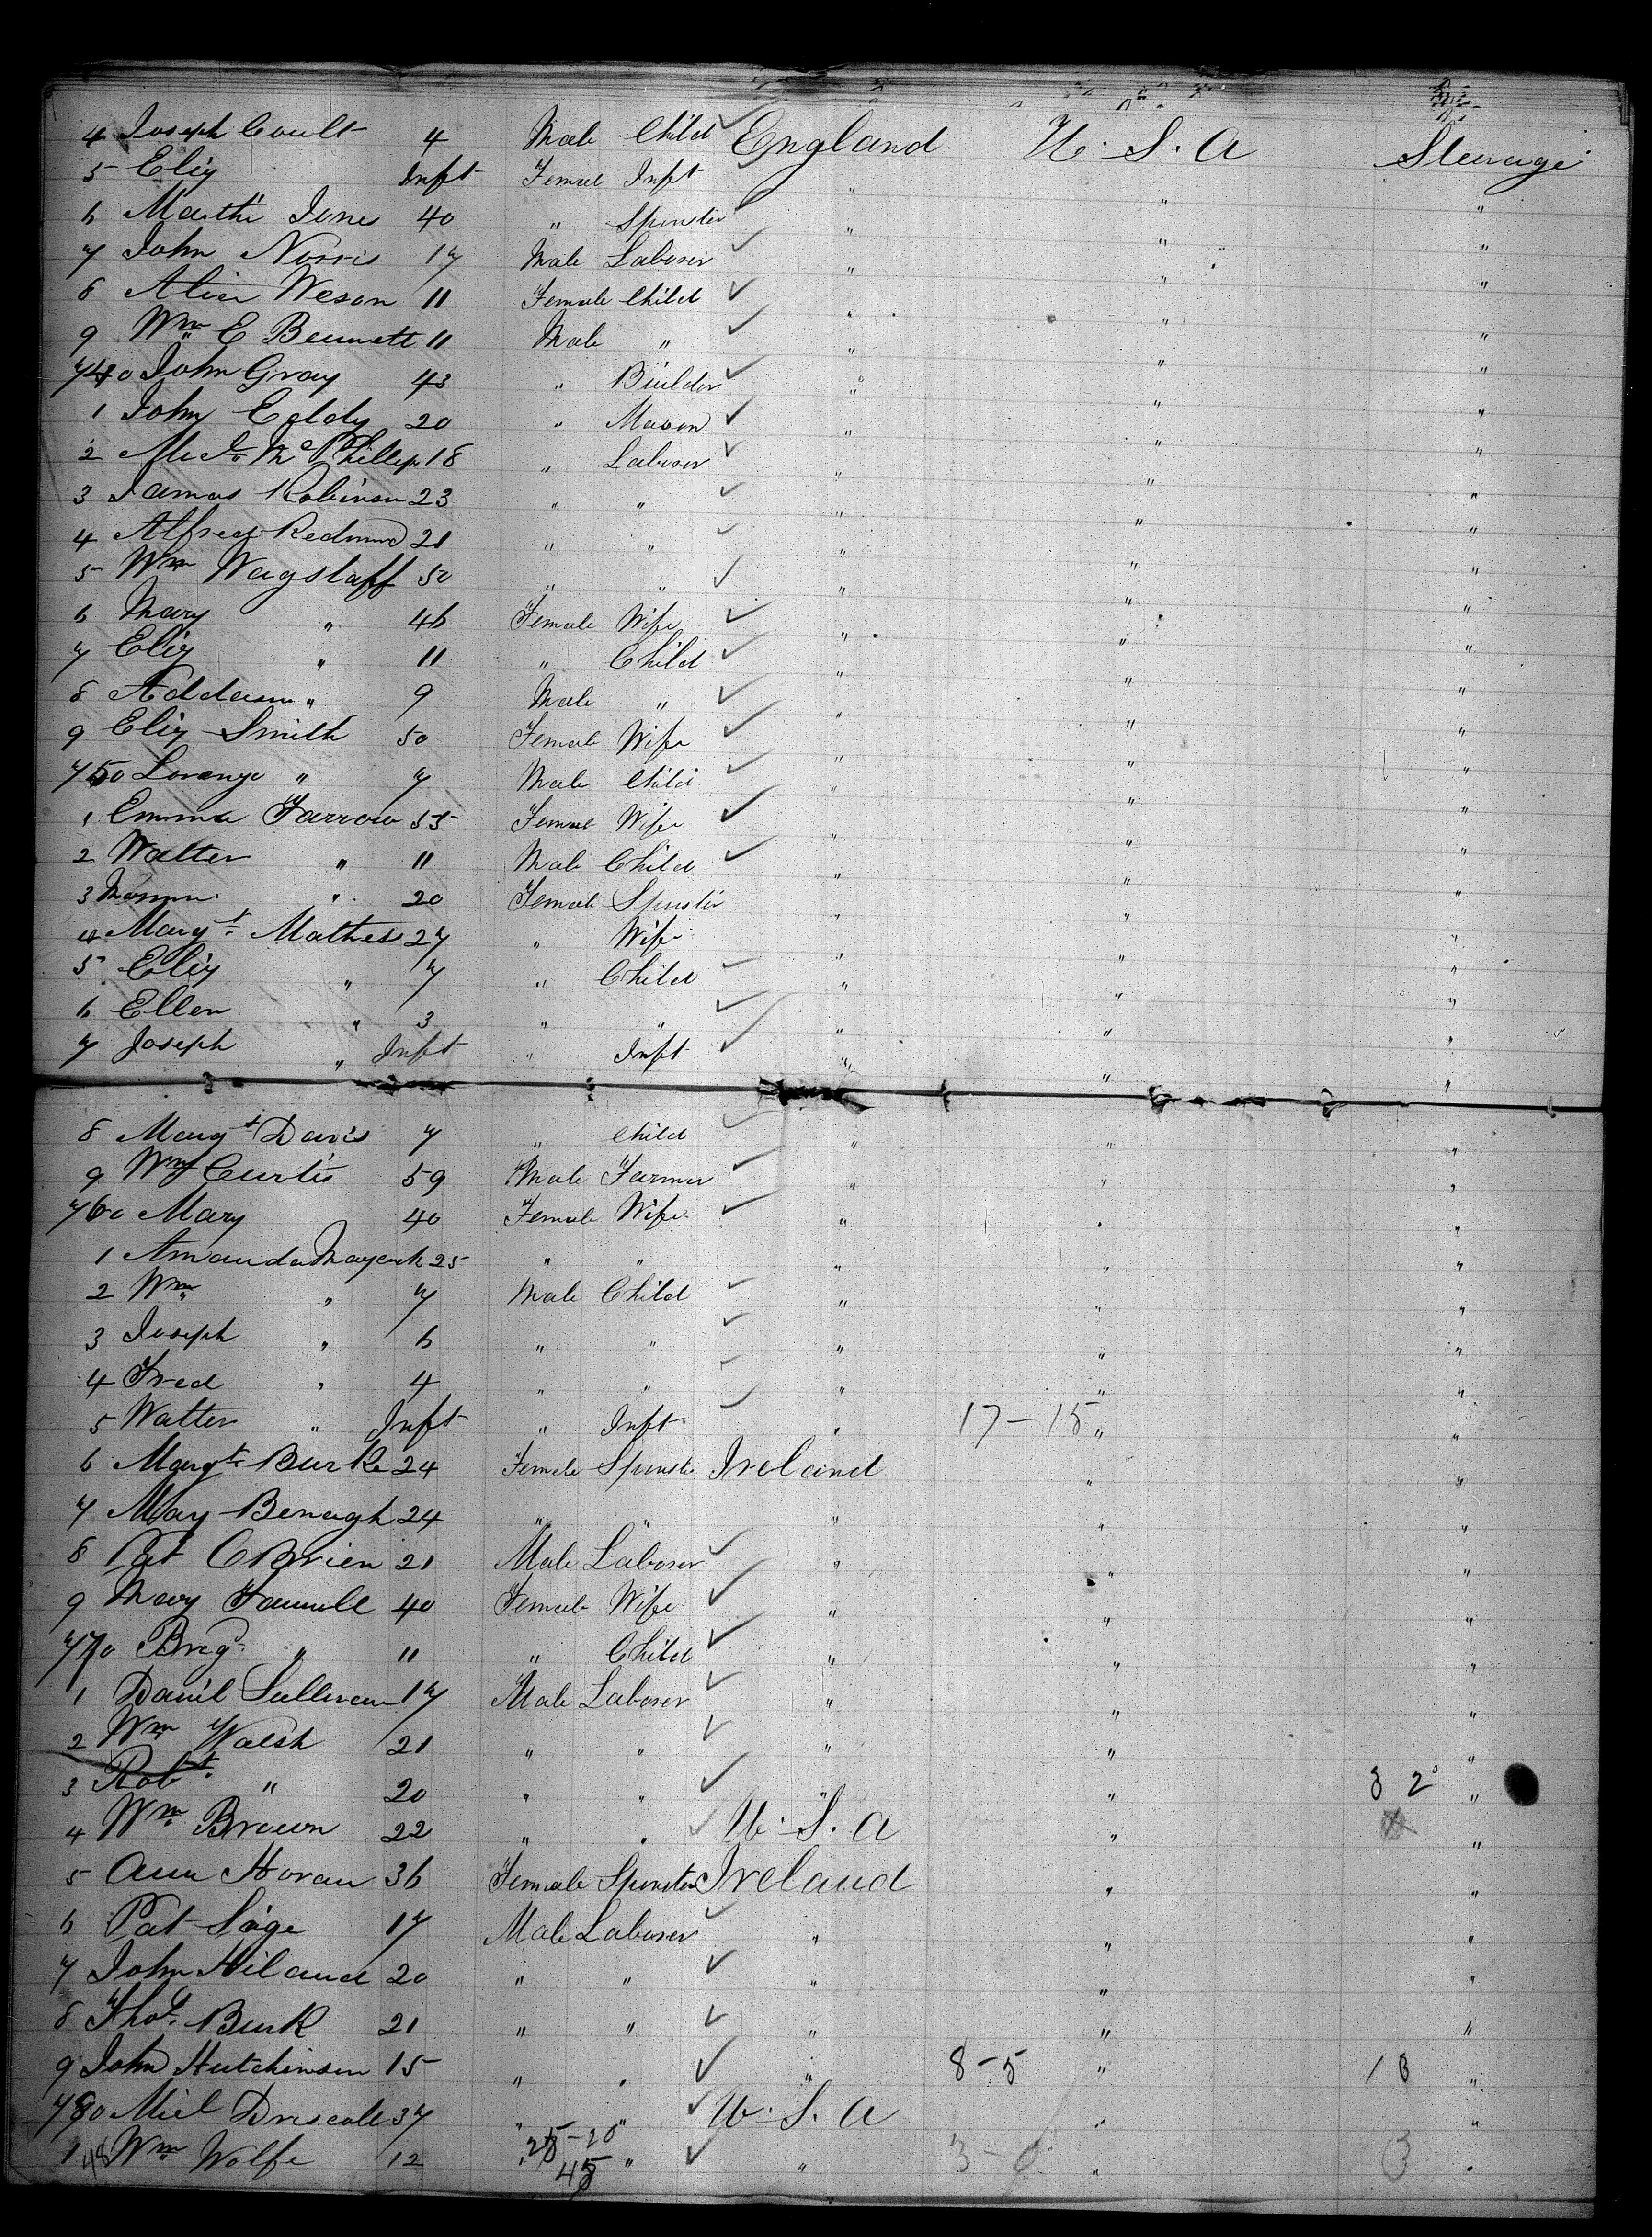 4 Joseph Coult 4 Male Child England U. S. A Steerage
5 Eliz Inft Female Inft " " "
6 Martha Jones 40 " Spinster " " "
7 John Norris 17 Male Laborer " " "
8 Alice Weson 11 Female Child " " "
9 Wm E Bennett 11 Male " " " "
740 John Gray 43 " Builder " " "
1 John Eddy 20 " Mason " " "
2 Mc Phillip 18 " Laborer " " "
3 James Robinson 23 " " " " "
4 Alfred Redmund 21 " " " " "
5 Wm Wagstaff 50 " " " " "
6 Mary " 46 Female Wife " " "
7 Eliz " 11 " Child " " "
8 Addam " 9 Male " " " "
9 Eliz Smith 50 Female Wife " " "
750 Lorenzo " 7 Male Child " " "
1 Emma Farrow 55 Female Wife " " "
2 Walter " 11 Male Child " " "
3 " 20 Female Spinster " " "
4 Margt Mathes 27 " Wife " " "
5 Eliz " 7 " Child " " "
6 Ellen " 3 " " " " "
7 Joseph " Inft " Inft " " "
8 Margt Davis 7 " Child " " "
9 Wm Curtis 59 Male Farmer " " "
760 Mary 40 Female Wife " " "
1 Amanda 25 " " " " "
2 Wm " 7 Male Child " " "
3 Joseph " 6 " " " " "
4 Fred " 4 " " " " "
5 Walter " Inft " Inft " 17-15 " "
6 Margt Burke 24 Female Spinster Ireland " "
7 May Benagh 24 " " " " "
8 Pat OBrien 21 Male Laborer " " "
9 Mary 40 Female Wife " " "
770 Brigd " 11 " Child " " "
1 Daniel Sullivan 17 Male Laborer " " "
2 Wm Walsh 21 " " " " "
3 Robt " 20 " " " " 82 "
4 Wm Brown 22 " " U. S. A " "
5 Ann Horan 36 Female Spinster Ireland " "
6 Pat Sage 17 Male Laborer " " "
7 John Hiland 20 " " " " "
8 Thos Burk 21 " " " " "
9 John Hutchinson 15 " " " 8-5 " 13 "
780 Miel Driscoll 37 " " U. S. A " "
1 48 Wm Wolfe 12 " 25-20 " " 3-0 " 3 "
48